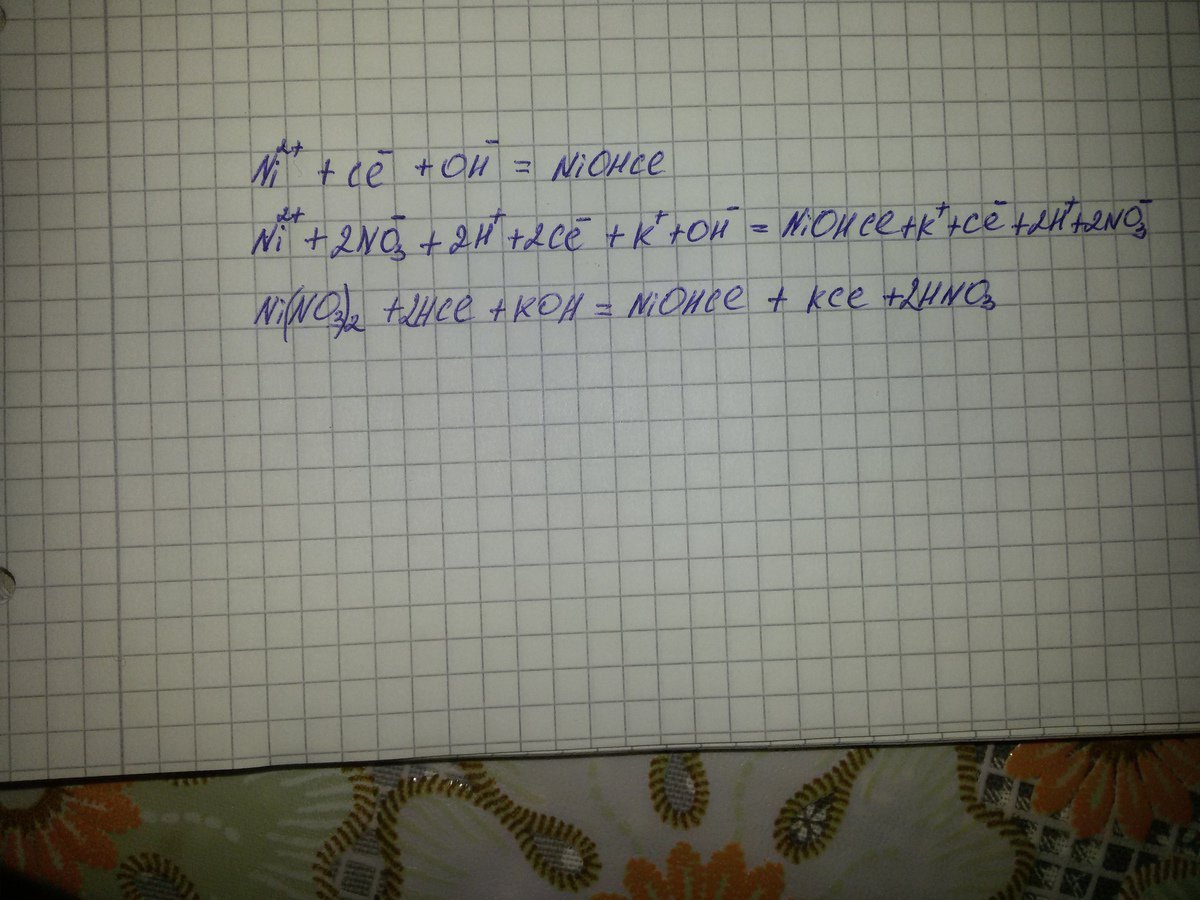 Ni²⁺ + Cl⁻ + OH⁻ = NiOHCl
Ni²⁺ + 2NO₃⁻ + 2H⁺ + 2Cl⁻ + K⁺ + OH⁻ = NiOHCl + K⁺ + Cl⁻ + 2H⁺ + 2NO₃⁻
Ni(NO₃)₂ + 2HCl + KOH = NiOHCl + KCl + 2HNO₃